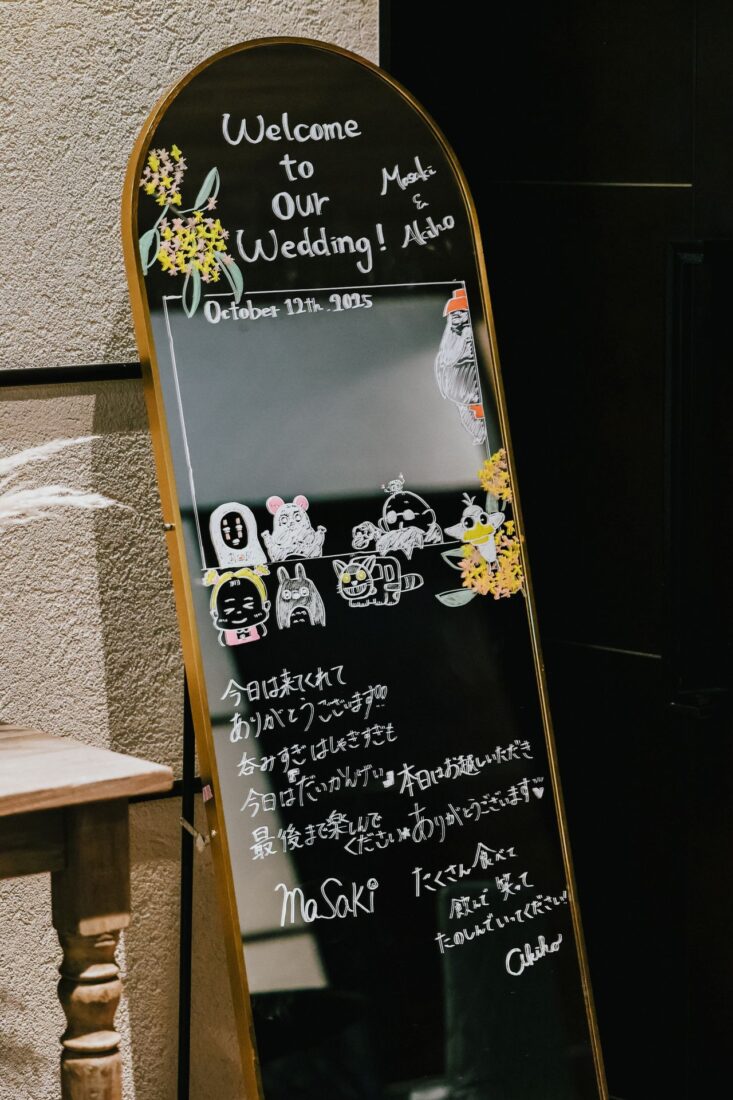 Welcome
to
Our
Wedding!
Masaki
&
Akiho
October 12th. 2025
今日は来てくれて
ありがとうございます!!
呑みすぎはしゃぎすぎも
今日は『だいかんげい』
最後まで楽しんで
ください★
Masaki
本日はお越しいただき
ありがとうございます♥
たくさん食べて
飲んで 笑って
たのしんでいってください!!
akiho